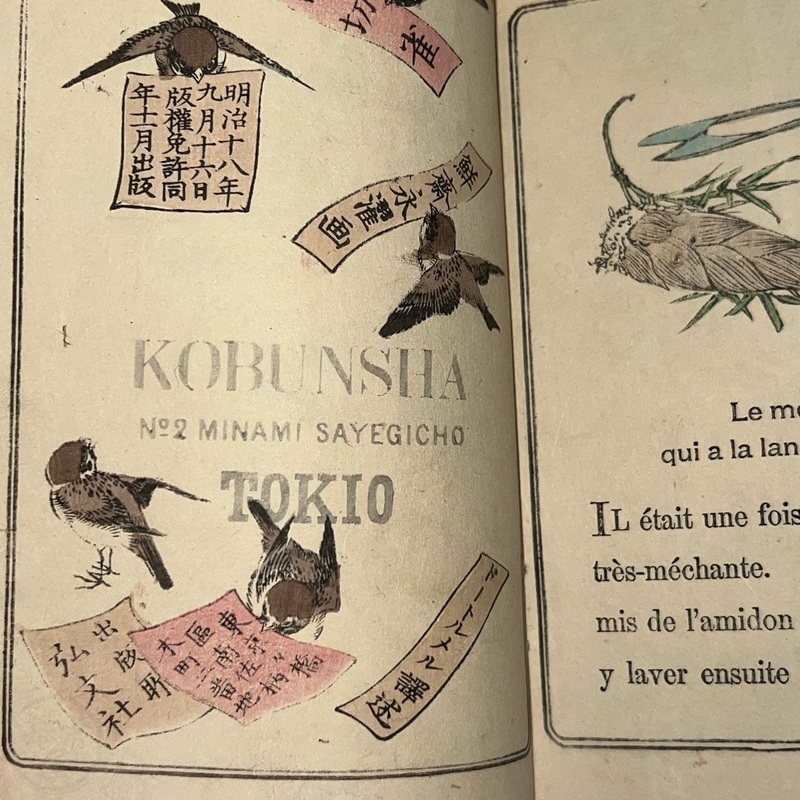 切雀
明治十八年
九月十六日
版權免許同
年十一月出版
鮮齋永濯画
KOBUNSHA
Nº2 MINAMI SAYEGICHO
TOKIO
出版所
弘文社
東京々橋
區南佐柄
木町二番地
ドートルメル譯述
Le
qui a la
IL était une fois
très-méchante.
mis de l'amidon
y laver ensuite